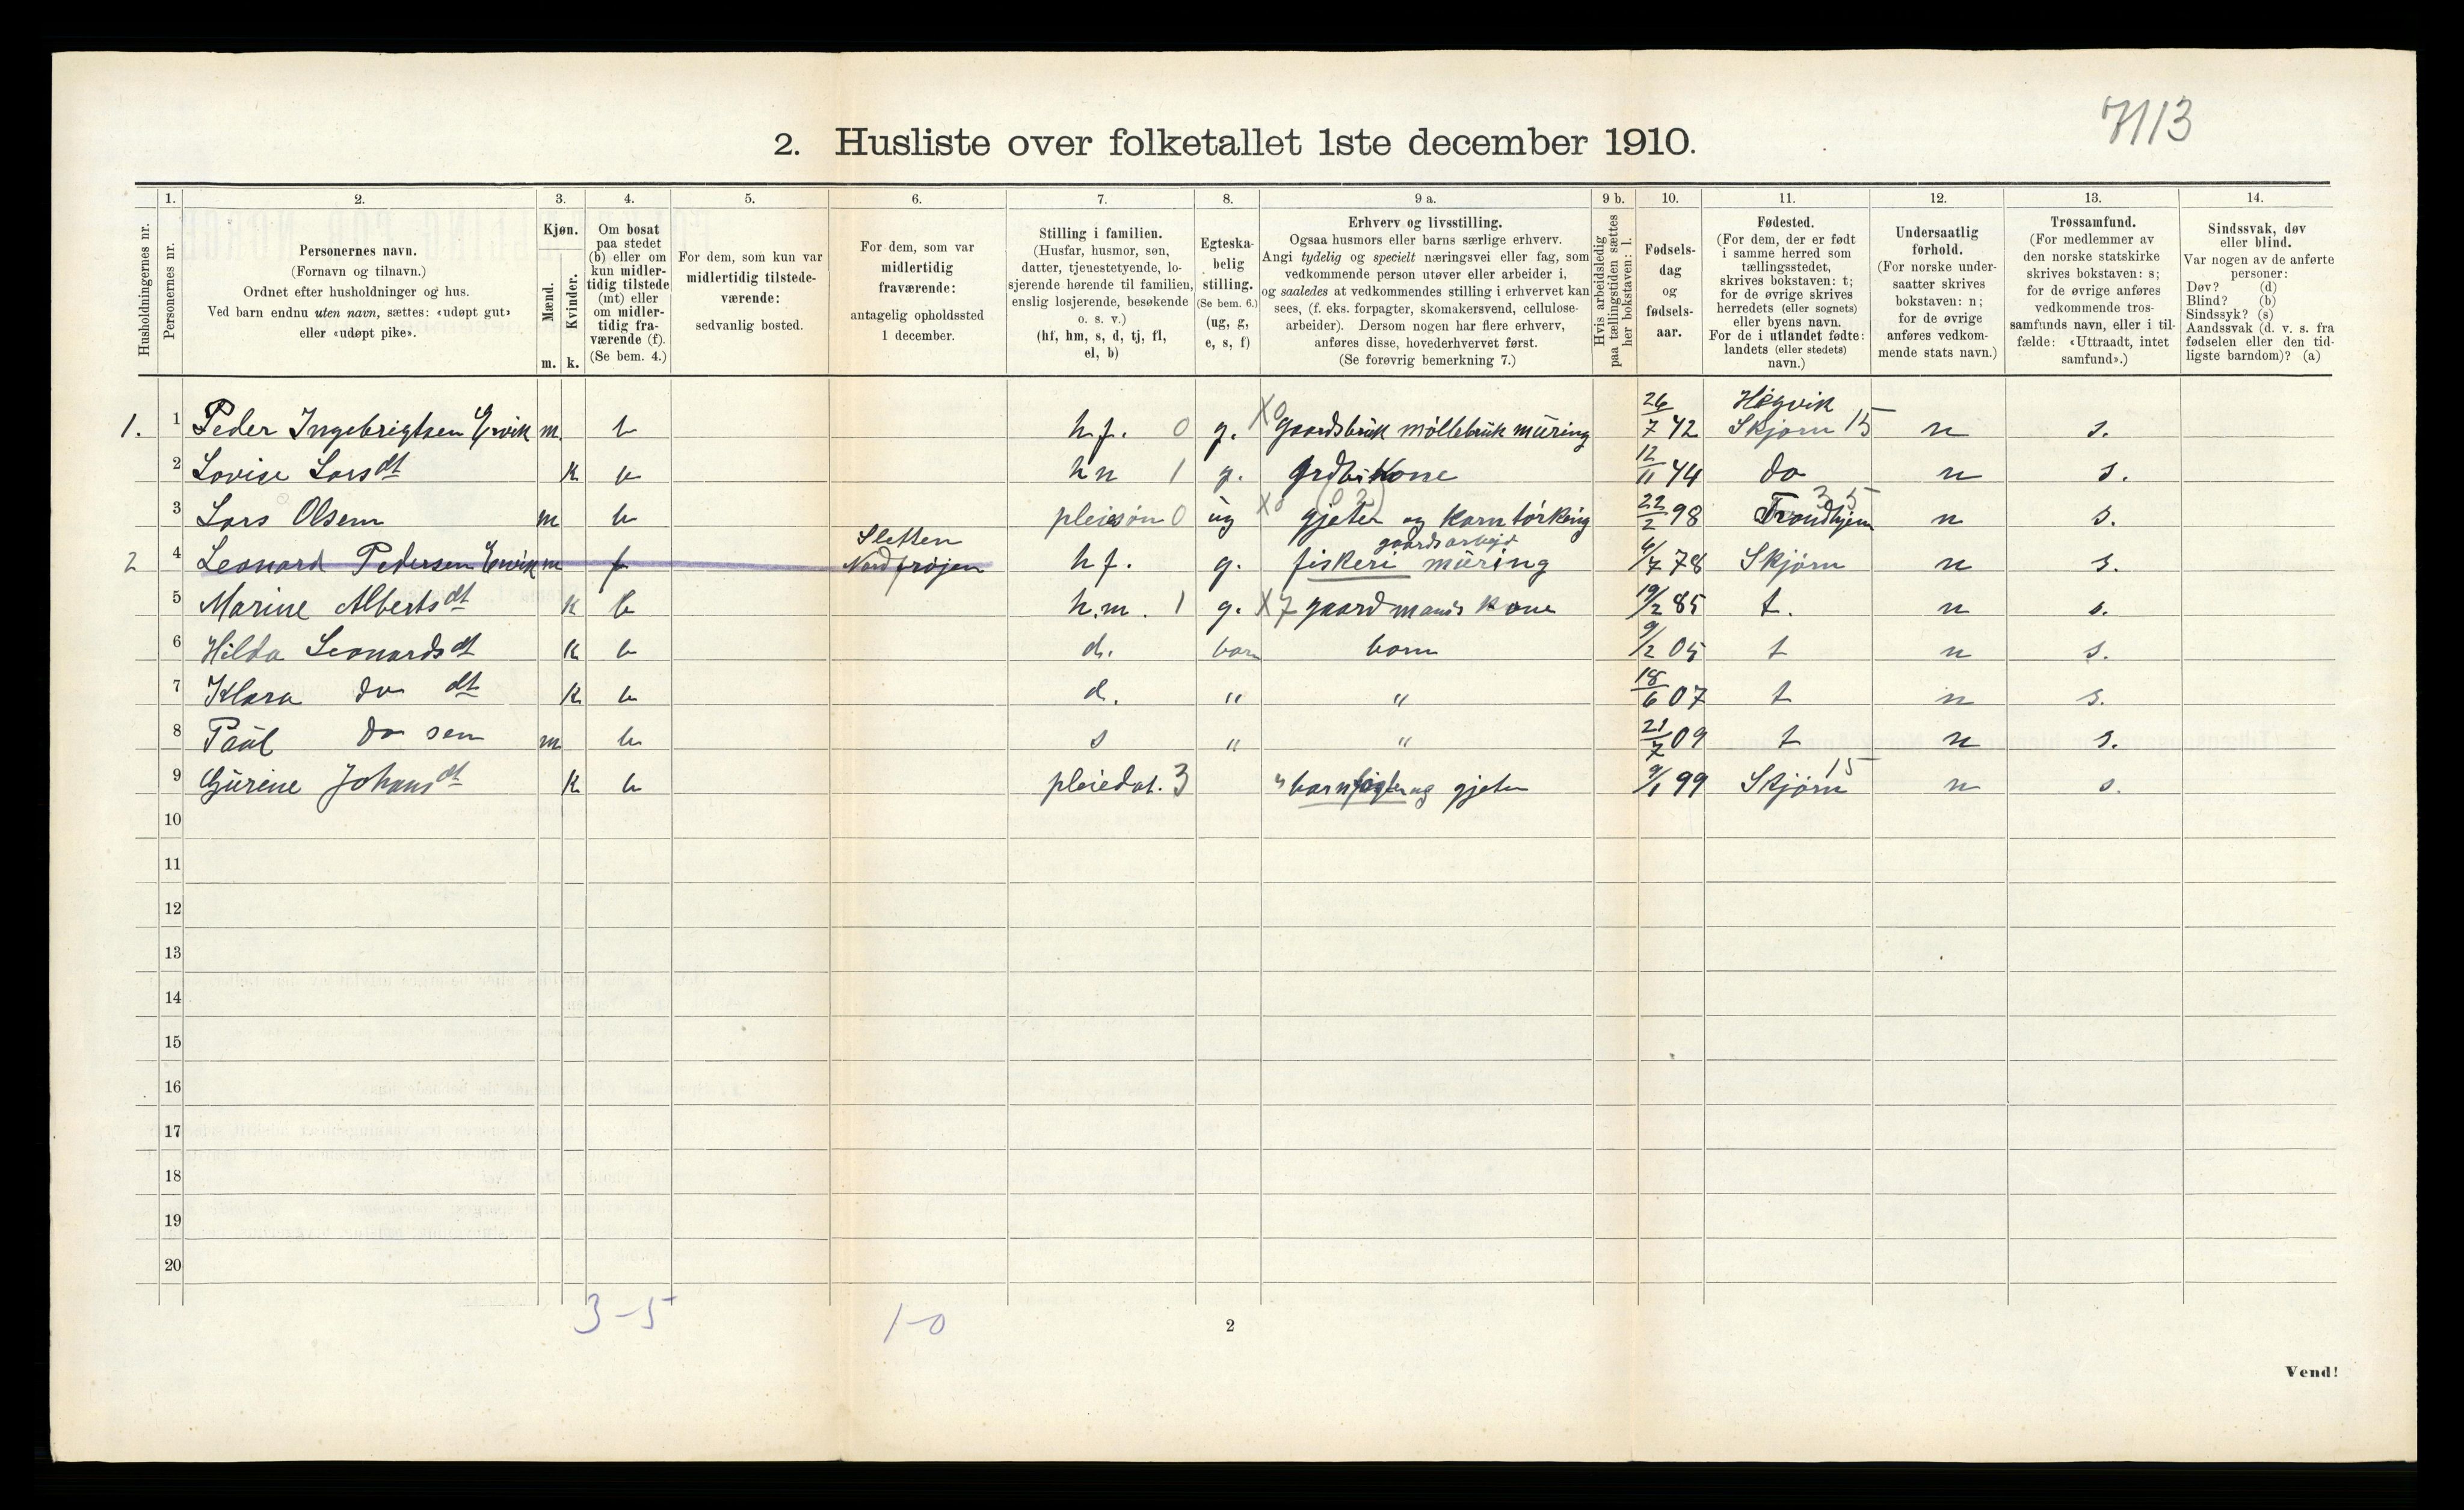 7113
2. Husliste over folketallet 1ste december 1910.
Husholdningernes nr.
1.
Personernes nr.
2.
Personernes navn.
(Fornavn og tilnavn.)
Ordnet efter husholdninger og hus.
Ved barn endnu uten navn, sættes: «udøpt gut»
eller «udøpt pike».
3.
Kjøn.
Mænd.
Kvinder.
m. k.
4.
Om bosat
paa stedet
(b) eller om
kun midler-
tidig tilstede
(mt) eller
om midler-
tidig fra-
værende (f).
(Se bem. 4.)
5.
For dem, som kun var
midlertidig tilstede-
værende:
sedvanlig bosted.
6.
For dem, som var
midlertidig
fraværende:
antagelig opholdssted
1 december.
7.
Stilling i familien.
(Husfar, husmor, søn,
datter, tjenestetyende, lo-
sjerende hørende til familien,
enslig losjerende, besøkende
o. s. v.)
(hf, hm, s, d, tj, fl,
el, b)
8.
Egteska-
belig
stilling.
(Se bem. 6.)
(ug, g,
e, s, f)
9 a.
Erhverv og livsstilling.
Ogsaa husmors eller barns særlige erhverv.
Angi tydelig og specielt næringsvei eller fag, som
vedkommende person utøver eller arbeider i,
og saaledes at vedkommendes stilling i erhvervet kan
sees, (f. eks. forpagter, skomakersvend, cellulose-
arbeider). Dersom nogen har flere erhverv,
anføres disse, hovederhvervet først.
(Se forøvrig bemerkning 7.)
9 b.
Hvis arbeidsledig
paa tællingstiden sættes
her bokstaven: l.
10.
Fødsels-
dag
og
fødsels-
aar.
11.
Fødested.
(For dem, der er født
i samme herred som
tællingsstedet,
skrives bokstaven: t;
for de øvrige skrives
herredets (eller sognets)
eller byens navn.
For de i utlandet fødte:
landets (eller stedets)
navn.)
12.
Undersaatlig
forhold.
(For norske under-
saatter skrives
bokstaven: n;
for de øvrige
anføres vedkom-
mende stats navn.)
13.
Trossamfund.
(For medlemmer av
den norske statskirke
skrives bokstaven: s;
for de øvrige anføres
vedkommende tros-
samfunds navn, eller i til-
fælde: «Uttraadt, intet
samfund».)
14.
Sindssvak, døv
eller blind.
Var nogen av de anførte
personer:
Døv? (d)
Blind? (b)
Sindssyk? (s)
Aandssvak (d. v. s. fra
fødselen eller den tid-
ligste barndom)? (a)
Høgvik
1. 1 Peder Ingebrigtsen Ervik m. b h.f. 0 g. X0 gaardsbruk møllebruk muring 26/7 42 Skjørn 15 n s.
2 Lovise Larsdt k b hm 1 g. grdbr Kone 12/11 44 do n s.
3 Lars Olsen m b pleiesøn 0 ug X0 gjeter og korntørking 22/2 98 Trondhjem 35 n s.
Sletten gaardsarbejd
2 4 Leonard Pedersen Ervik m f Nordfrøjen h f. g. fiskeri muring 6/7 78 Skjørn n s.
5 Marine Albertsdt k b h.m. 1 g. X7 gaardmands kone 19/2 85 t. n s.
6 Hilda Leonardsdt k b d. barn barn 9/2 05 t n s.
7 Klara do dt k b d. " " 18/6 07 t n s.
8 Paul do sen m b s " " 21/7 09 t n s.
9 Gurine Johansdt k b pleiedat. 3 " barnpige og gjeter 9/1 99 Skjørn 15 n s.
10
11
12
13
14
15
16
17
18
19
20
3-5 1-0
2
Vend!